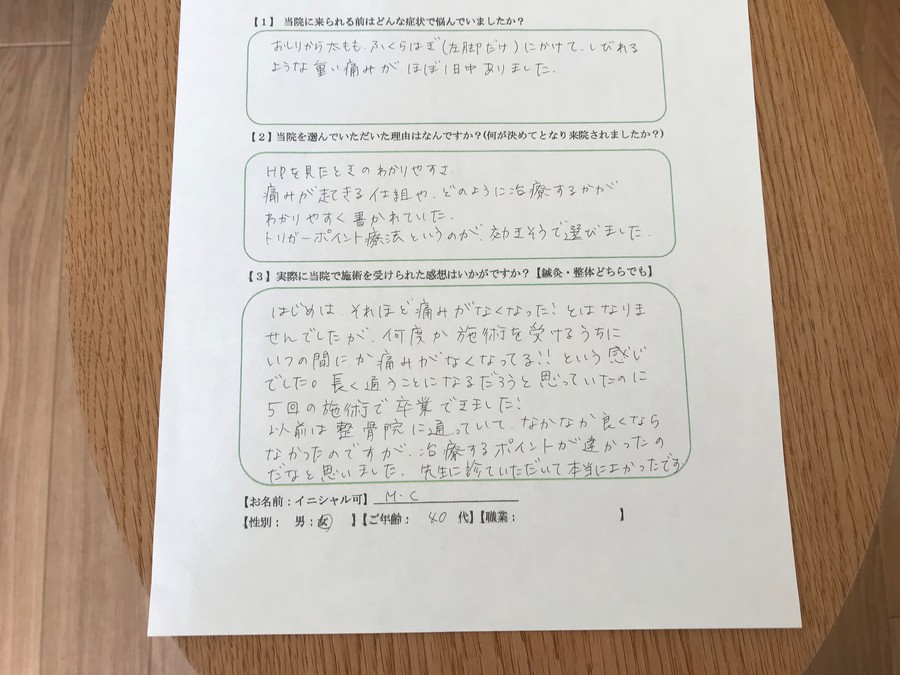 【１】 当院に来られる前はどんな症状で悩んでいましたか？
おしりから太もも、ふくらはぎ(左脚だけ)にかけて、しびれる
ような重い痛みが ほぼ1日中ありました。
【２】当院を選んでいただいた理由はなんですか？(何が決めてとなり来院されましたか？)
HPを見たときのわかりやすさ
痛みが起てきる仕組や、どのように治療するかが
わかりやすく書かれていた。
トリガーポイント療法というのが、効きそうで選びました。
【３】実際に当院で施術を受けられた感想はいかがですか？【鍼灸・整体どちらでも】
はじめは、それほど痛みがなくなった！とはなりま
せんでしたが、何度か施術を受けるうちに
いつの間にか痛みがなくなってる!! という感じ
でした。長く通うことになるだろうと思っていたのに
5回の施術で卒業できました！
以前は整骨院に通っていて、なかなか良くなら
なかったのですが、治療するポイントが違かったの
だなと思いました。先生に診ていただいて本当によかったです
【お名前：イニシャル可】 M・C
【性別： 男：女 】【ご年齢： 40 代】【職業： 】